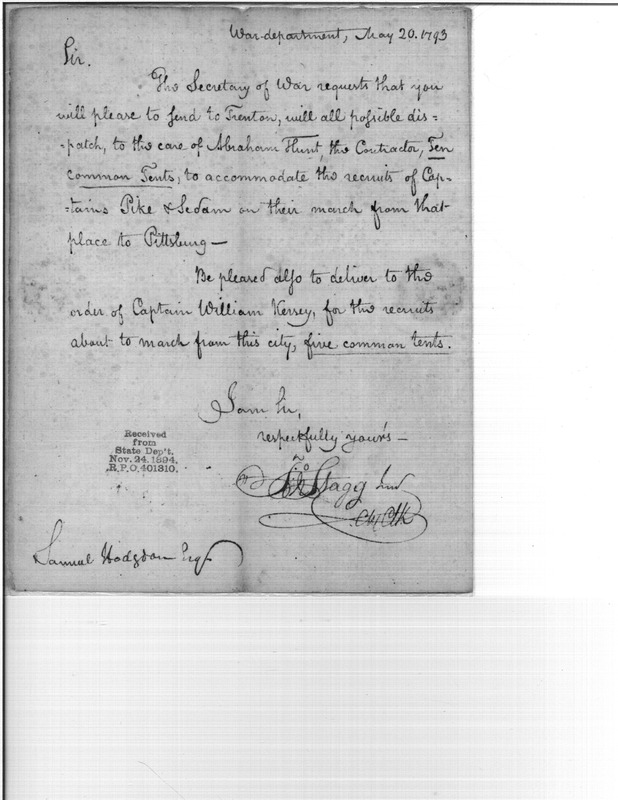 War department, May 20. 1793
Sir.
The Secretary of War requests that you
will please to send to Trenton, will all possible dis=
=patch, to the care of Abraham Hunt, the Contractor, Ten
common Tents, to accommodate the recruits of Cap=
=tains Pike & Sedam on their march from that
place to Pittsburg—
Be pleased also to deliver to the
order of Captain William Kersey, for the recruits
about to march from this city, five common tents.
I am Sir,
respectfully yours—
Received
from
State Dep't.
Nov. 24. 1894.
R.P.O. 401310.
Jno Stagg Jun
Samuel Hodgdon Esqr